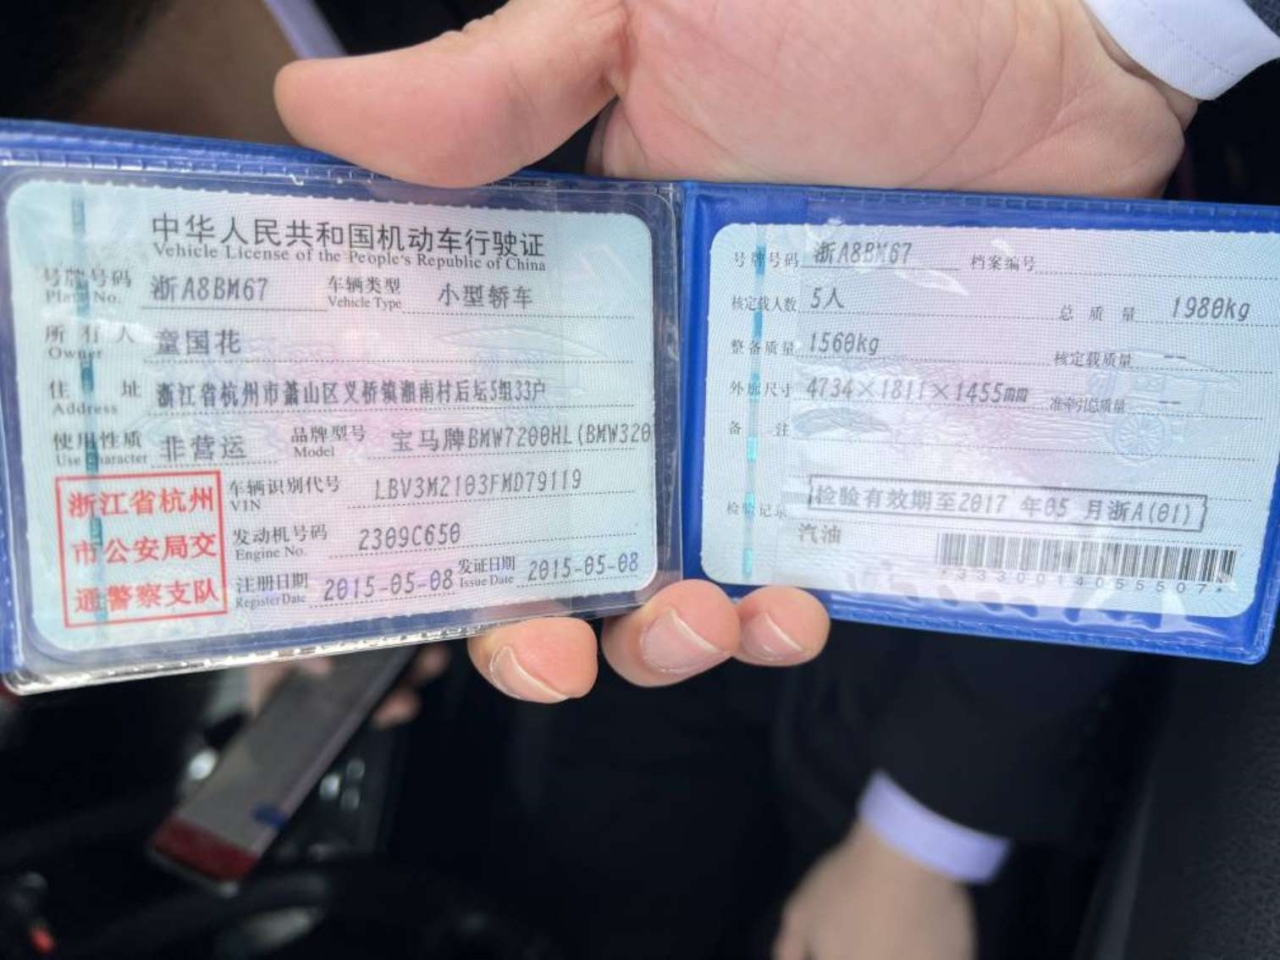 中华人民共和国机动车行驶证
Vehicle License of the People's Republic of China
号牌号码 浙A8BM67 车辆类型 小型轿车
Plate No. Vehicle Type
所有人 童国花
Owner
住址 浙江省杭州市萧山区义桥镇湘南村后坛5组33户
Address
使用性质 非营运 品牌型号 宝马牌BMW7200HL(BMW320
Use Character Model
浙江省杭州
市公安局交
通警察支队
车辆识别代号 LBV3M2103FMD79119
VIN
发动机号码 2309C650
Engine No.
注册日期 2015-05-08 发证日期 2015-05-08
Register Date Issue Date
号牌号码 浙A8BM67 档案编号
核定载人数 5人 总质量 1980kg
整备质量 1560kg 核定载质量 --
外廓尺寸 4734×1811×1455mm 准牵引总质量 --
备注
检验记录 检验有效期至2017年05月浙A(01)
汽油
*3330014055507*